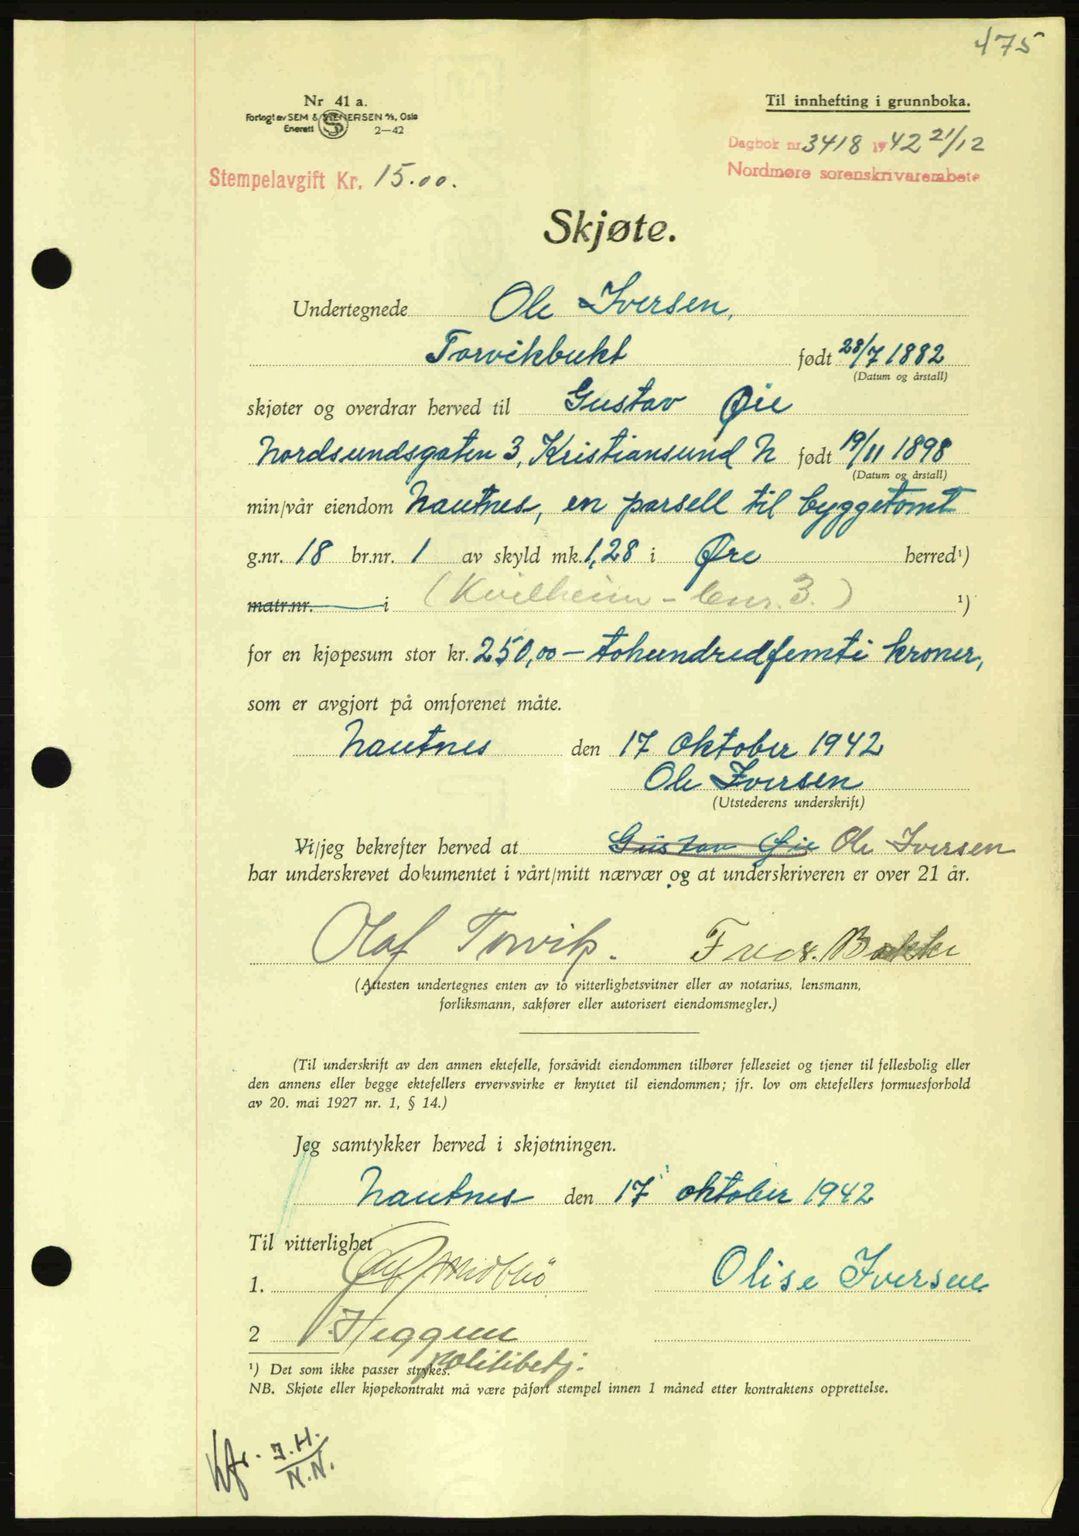 475
Nr 41 a.
Forlagt av SEM & STENERSEN A/S, Oslo
Enerett 2—42
Til innhefting i grunnboka.
Dagbok nr. 3418 1942 21/12
Nordmøre sorenskrivarembete
Stempelavgift Kr. 15.00.
Skjøte.
Undertegnede Ole Iversen,
Torvikbukt født 28/7 1882
(Datum og årstall)
skjøter og overdrar herved til Gustav Øie
Nordsundsgaten 3, Kristiansund N født 19/11 1898
(Datum og årstall)
min/vår eiendom Nautnes, en parsell til byggetomt
g.nr. 18 br.nr. 1 av skyld mk. 1,28 i Øre herred¹)
matr.nr. i (Kvilheim - bnr. 3.) ¹)
for en kjøpesum stor kr. 250,00 — tohundredfemti kroner,
som er avgjort på omforenet måte.
Nautnes den 17 oktober 1942
Ole Iversen
(Utstederens underskrift)
Vi/jeg bekrefter herved at Gustav Øie Ole Iversen
har underskrevet dokumentet i vårt/mitt nærvær og at underskriveren er over 21 år.
Olaf Torvik. Fredr. Bakke
(Attesten undertegnes enten av to vitterlighetsvitner eller av notarius, lensmann,
forliksmann, sakfører eller autorisert eiendomsmegler.)
(Til underskrift av den annen ektefelle, forsåvidt eiendommen tilhører felleseiet og tjener til fellesbolig eller
den annens eller begge ektefellers ervervsvirke er knyttet til eiendommen; jfr. lov om ektefellers formuesforhold
av 20. mai 1927 nr. 1, § 14.)
Jeg samtykker herved i skjøtningen.
Nautnes den 17 oktober 1942
Til vitterlighet
1. Olise Iversen
2 Heggem
politibetj.
¹) Det som ikke passer strykes.
NB. Skjøte eller kjøpekontrakt må være påført stempel innen 1 måned etter kontraktens opprettelse.
Kfr. J.H.
N.N.